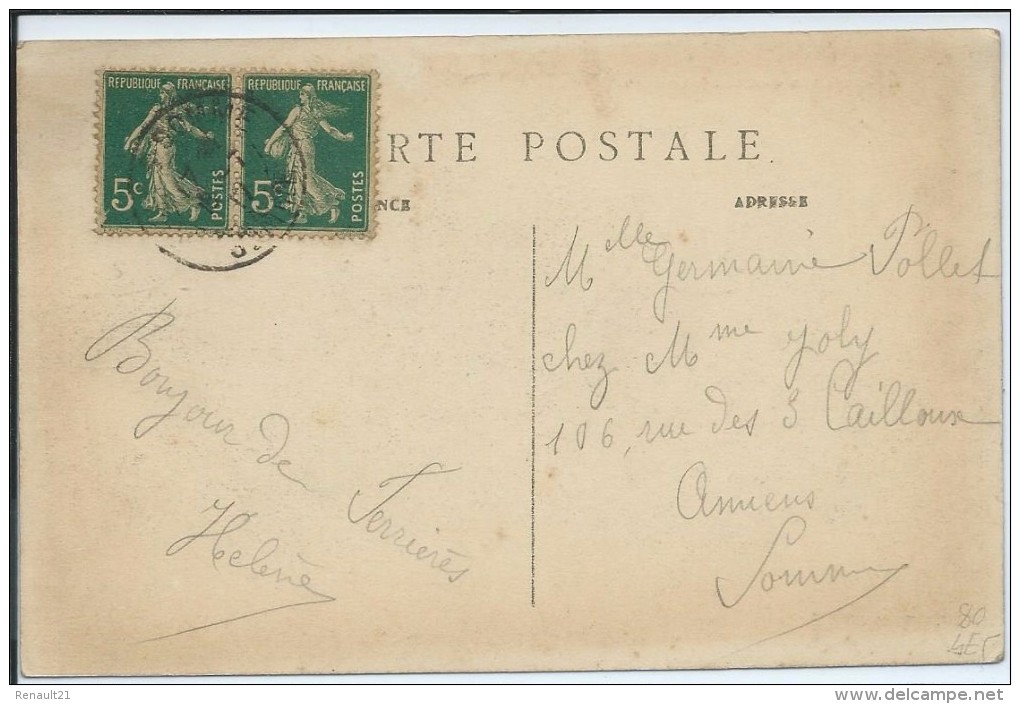 REPUBLIQUE FRANÇAISE
5c
POSTES
REPUBLIQUE FRANÇAISE
5c
POSTES
RTE POSTALE
NCE
ADRESSE
Mlle Germaine Pollet
chez Mme Joly
106, rue des 3 Cailloux
Amiens
Somme
Bonjour de
Ferrières
Helène
80
Renault21
www.delcampe.net